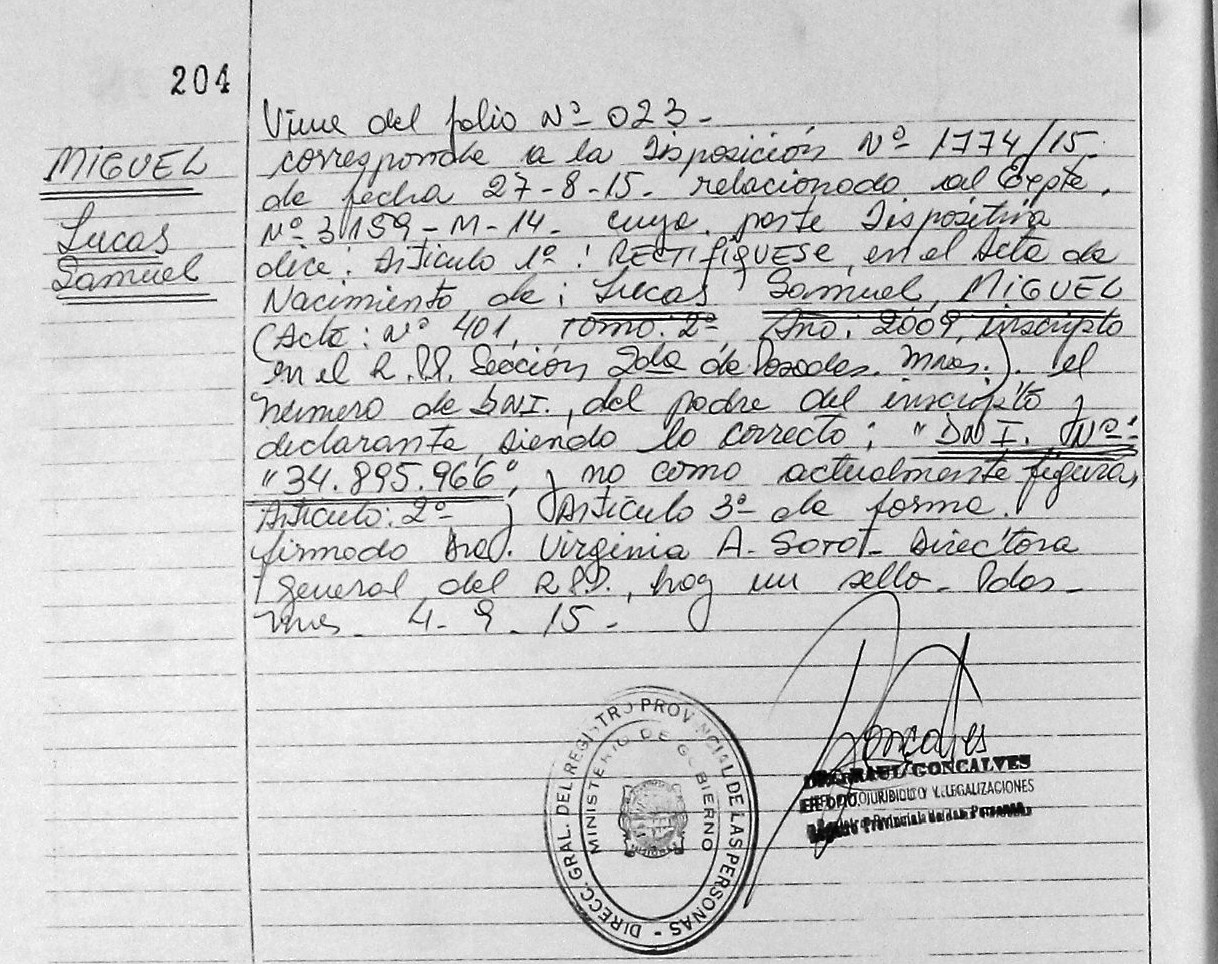 204
Viene del folio Nº 023-
MIGUEL
Lucas
Samuel
corresponde a la Disposición Nº 1774/15.
de fecha 27-8-15- relacionado al Expte.
Nº 3159-M-14- cuya parte Dispositiva
dice: Articulo 1º: RECTIFIQUESE, en el Acta de
Nacimiento de: Lucas Samuel, MIGUEL
(Acta: Nº 401, Tomo: 2º Año: 2009, inscripto
en el R.P.P. Sección 2da de Posadas. Mnes.). el
número de DNI., del padre del inscripto y
declarante, siendo lo correcto: "DNI. Nº:
"34.895.966", y no como actualmente figura,
Articulo: 2º y Articulo 3º de forma.
firmado Dra. Virginia A. Soto- Directora
General del R.P.P., hay un sello- Pdas-
Mnes- 4-9-15-
Goncalves
RAUL GONCALVES
JURIDICO Y LEGALIZACIONES
Registro Provincial de las Personas
DIRECC. GRAL. DEL REGISTRO PROVINCIAL DE LAS PERSONAS -
MINISTERIO DE GOBIERNO